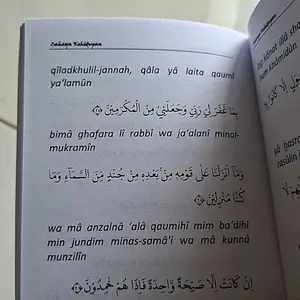 Cahaya Kehidupan
qîladkhulil-jannah, qâla yâ laita qaumî
ya'lamûn
بِمَا غَفَرَ لِيْ رَبِّيْ وَجَعَلَنِيْ مِنَ الْمُكْرَمِيْنَ ﴿٢٧﴾
bimâ ghafara lî rabbî wa ja'alanî minal-
mukramîn
وَمَآ اَنْزَلْنَا عَلٰى قَوْمِهٖ مِنْۢ بَعْدِهٖ مِنْ جُنْدٍ مِّنَ السَّمَآءِ وَمَا
كُنَّا مُنْزِلِيْنَ ﴿٢٨﴾
wa mâ anzalnâ 'alâ qaumihî mim ba'dihî
min jundim minas-samâ'i wa mâ kunnâ
munzilîn
اِنْ كَانَتْ اِلَّا صَيْحَةً وَّاحِدَةً فَاِذَا هُمْ خٰمِدُوْنَ ﴿٢٩﴾
kânat illâ
hum khâmidûn
rasûlin